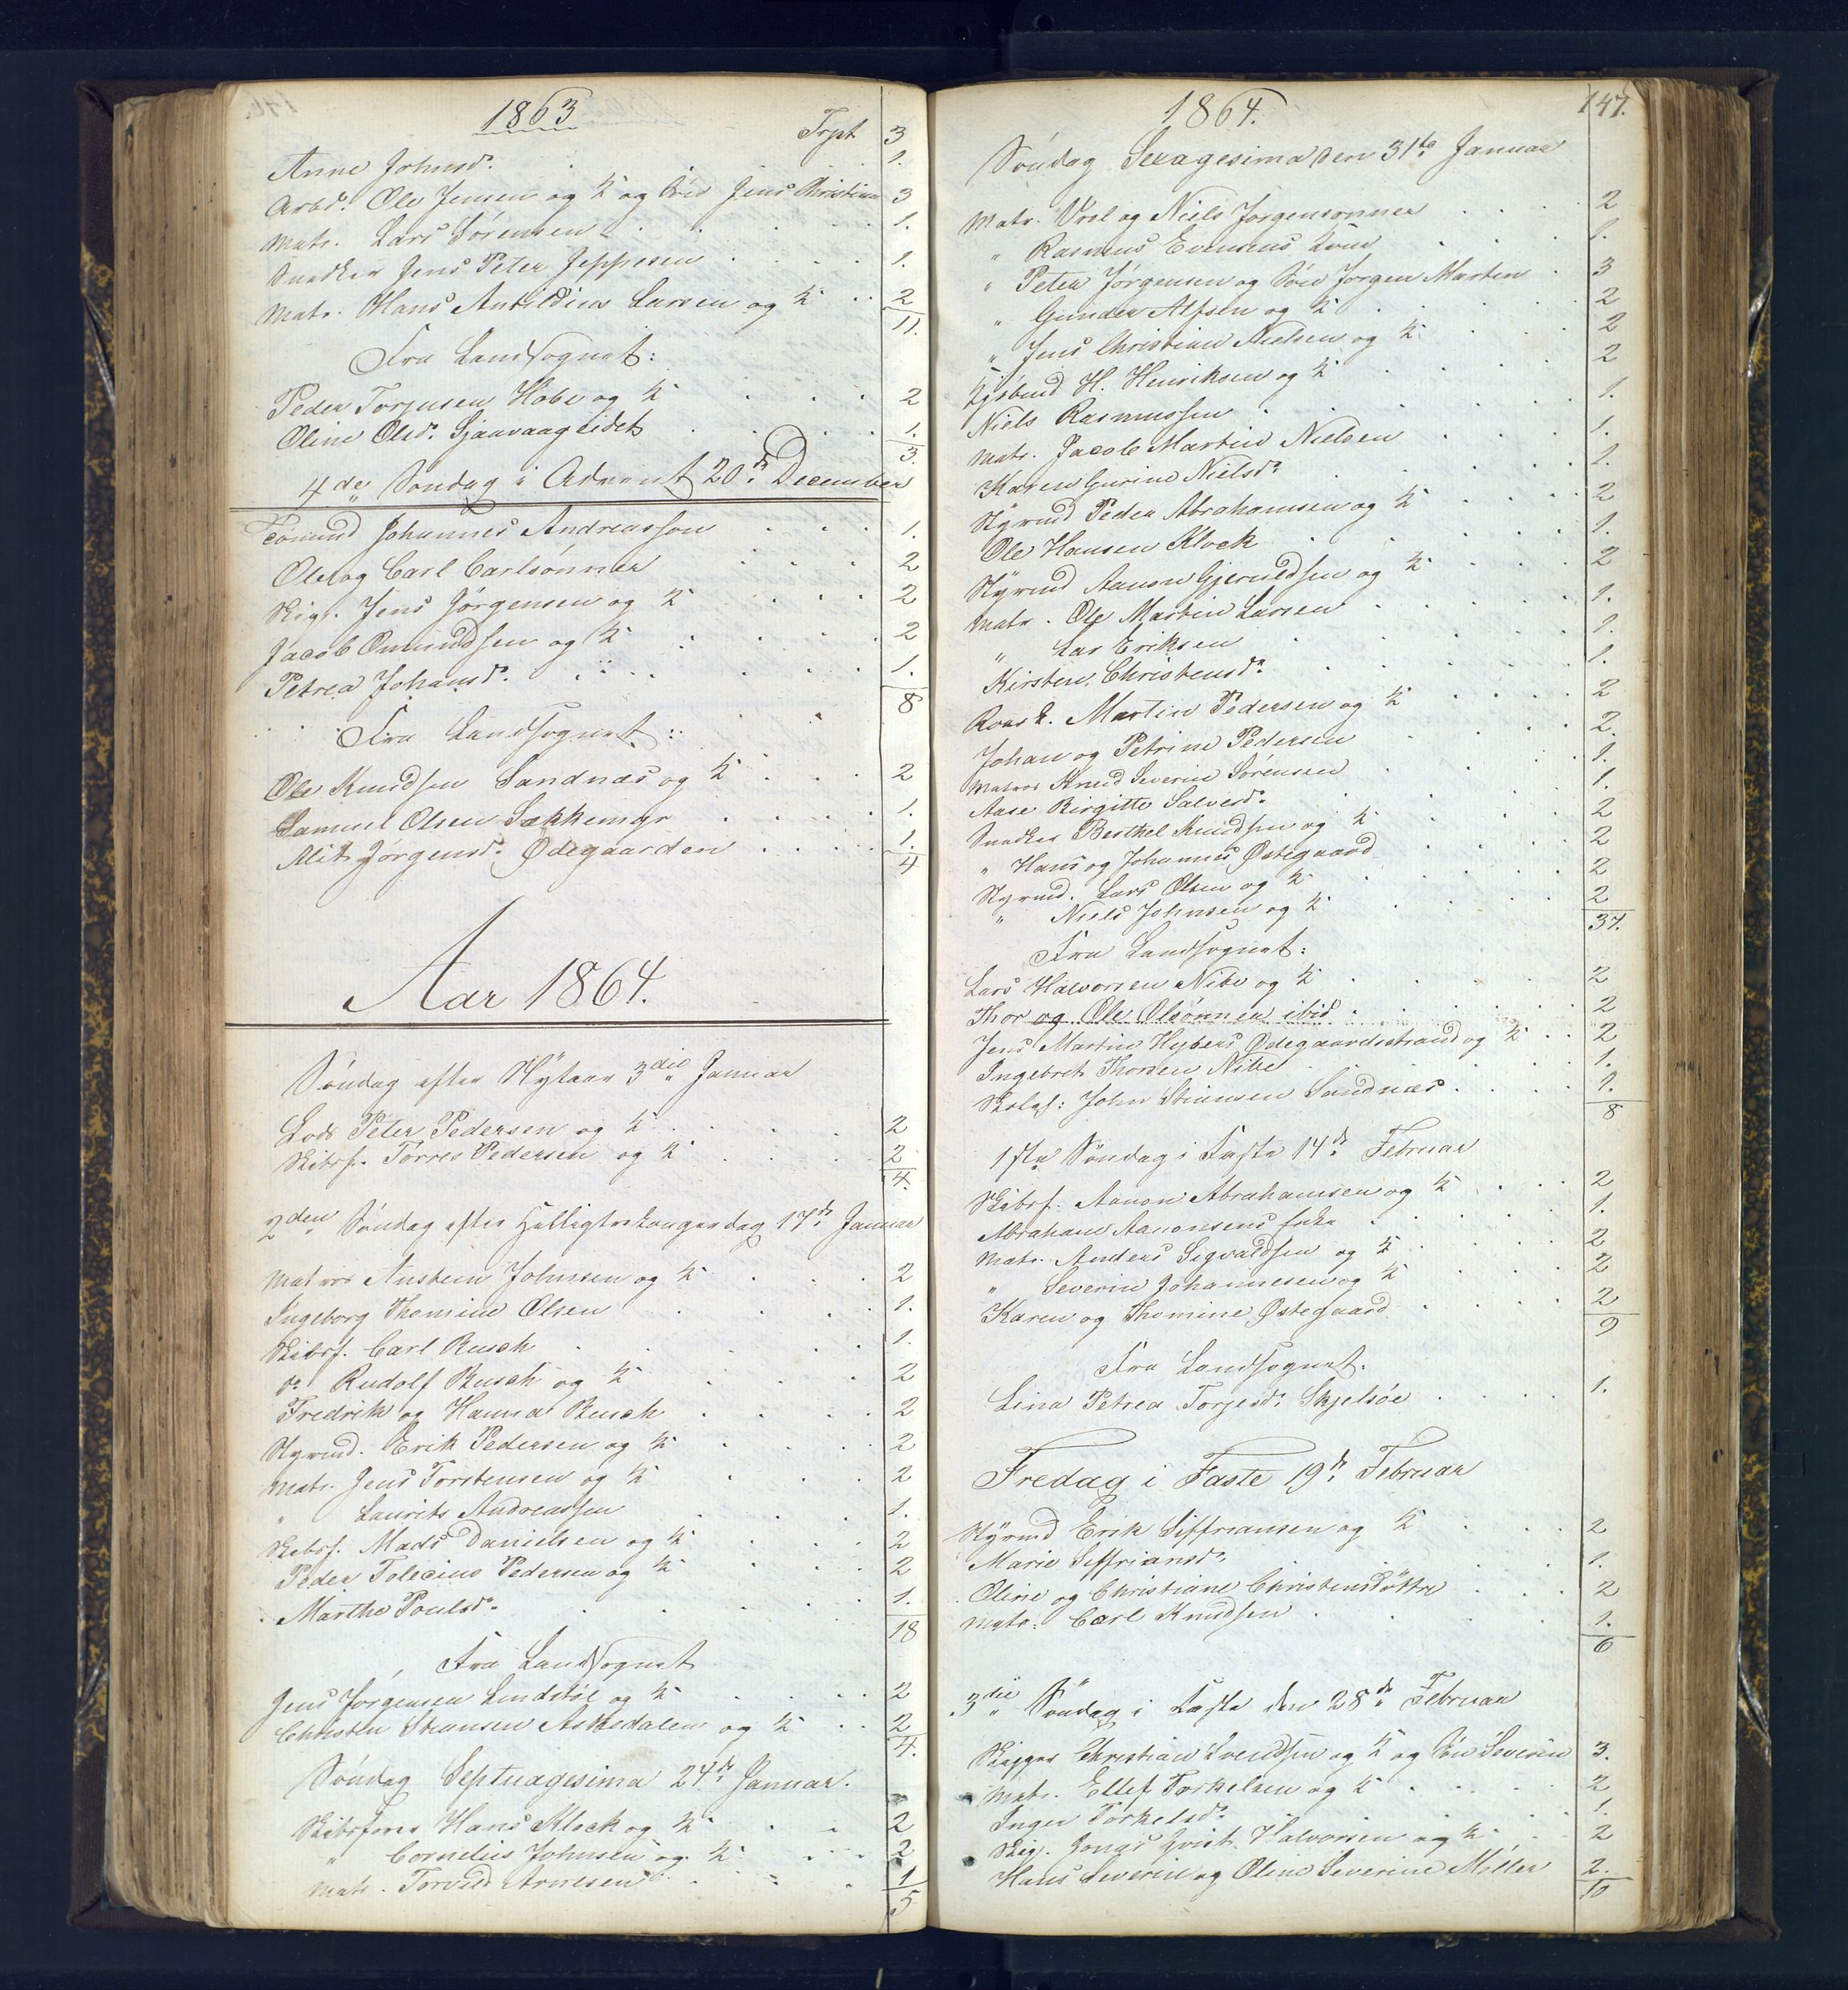 1863
Trpt 3
Anne Johnsd. 1.
Arbd. Ole Jensen og K og Sön Jens Christian 3
Matr. Lars Sörensen 1.
Snedker Jens Peter Jeppesen 1.
Matr. Hans Larsen og K 2
11.
Fra Landsognet:
Peder Torjusen Hobe og K 2
Oline Olsd. Sjaavaageidet 1.
3.
4de Söndag i Advent 20de December
Tömmd Johannes Andreassen 1.
Ole og Carl Carlsönner 2
Skigr. Jens Jörgensen og K 2
Jacob Omundsen og K 2
Petrea Johansd. 1.
8
Fra Landsognet:
Ole Knudsen Sandnæs og K 2
Samuel Olsen Sækkemyr 1.
Alet Jörgensd. Ødegaarden 1.
4
Aar 1864.
Söndag efter Nytaar 3die Januar
Lods Peter Pedersen og K 2
Skibsf. Torres Pedersen og K 2
4.
2den Söndag efter Helligtrekongersdag 17de Januar
Matros Anstein Johnsen og K 2
Ingeborg Thomine Olsen 1.
Skibsf. Carl Rusch 1.
do Rudolf Rusch og K 2
Fredrik og Hanna Rusch 2
Styrmd. Erik Pedersen og K 2
Matr. Jens Torstensen og K 2
" Laurits Andreassen 1.
Skibsf. Mads Danielsen og K 2
Peder Tolecius Pedersen og K 2
Marthe Poulsd. 1.
18
Fra Landsognet
Jens Jörgensen Lindstöl og K 2
Christen Stiansen Askedalen og K 2
4.
Söndag Septuagesima 24de Januar.
Skibsförer Hans Klock og K 2
" Cornelius Johnsen og K 2
Matr. Torvild Arnesen 1
5
1864.
147.
Söndag Sexagesima den 31te Januar
Matr. Vrol og Niels Jorgensønner 2
" Rasmus Evensens Kone 1.
" Peter Jörgensen og Sön Jörgen Martin 3
" Gunder Alfsen og K 2
" Jens Christian Nielsen og K 2
Kjöbmd H. Henriksen og K 2
Niels Rasmussen 1.
Matr. Jacob Martin Nielsen 1.
Karen Gurine Nielsd. 1.
Styrmd Peder Abrahamsen og K 2
Ole Hansen Klock 1.
Styrmd Aanon Gjeruldsen og K 2
Matr. Ole Martin Larsen 1.
" Lar Eriksen 1.
Kirsten Christensd. 1.
Martin Pedersen og K 2
Johan og Petrine Pedersen 2.
Matros Knud Severin Sörensen 1.
Aase Birgitte Salvesd. 1.
Snedker Berthel Knudsen og K 2
" Hans og Johannes Østegaard 2
Styrmd. Lars Olsen og K 2
" Niels Johnsen og K 2
37.
Fra Landsognet:
Lars Halvorsen Nibe og K 2
Thor og Ole Olsönner ibid 2
Jens Martin Nybers Ødegaardsstrand og K 2
Ingebret Thorsen Nibe 1.
Skolgf: John Stiansen Sandnæs 1.
8
1ste Söndag i Faste 14de Februar
Skibsf: Aanon Abrahamsen og K 2
Abraham Aanonsens Enke 1.
Matr. Anders Sigvaldsen og K 2
" Severin Johannesen og K 2
Karen og Thomine Østegaard 2
9
Fra Landsognet.
Lina Petrea Torjusd: Skjelsöe 1.
Fredag i Faste 19de Februar
Styrmd Erik Siffriansen og K 2
Marie Siffriansd. 1.
Oline og Christiane Christensdöttre 2
Matr: Carl Knudsen 1.
6
3die Söndag i Faste den 28de Februar
Skipper Christian Svendsen og K og Sön Severin 3.
Matr. Ellef Torkelsen og K 2
Inger Torkelsd. 1.
Skig. Jonas Qvist Halvorsen og K 2
Hans Severin og Oline Severine Möller 2.
10